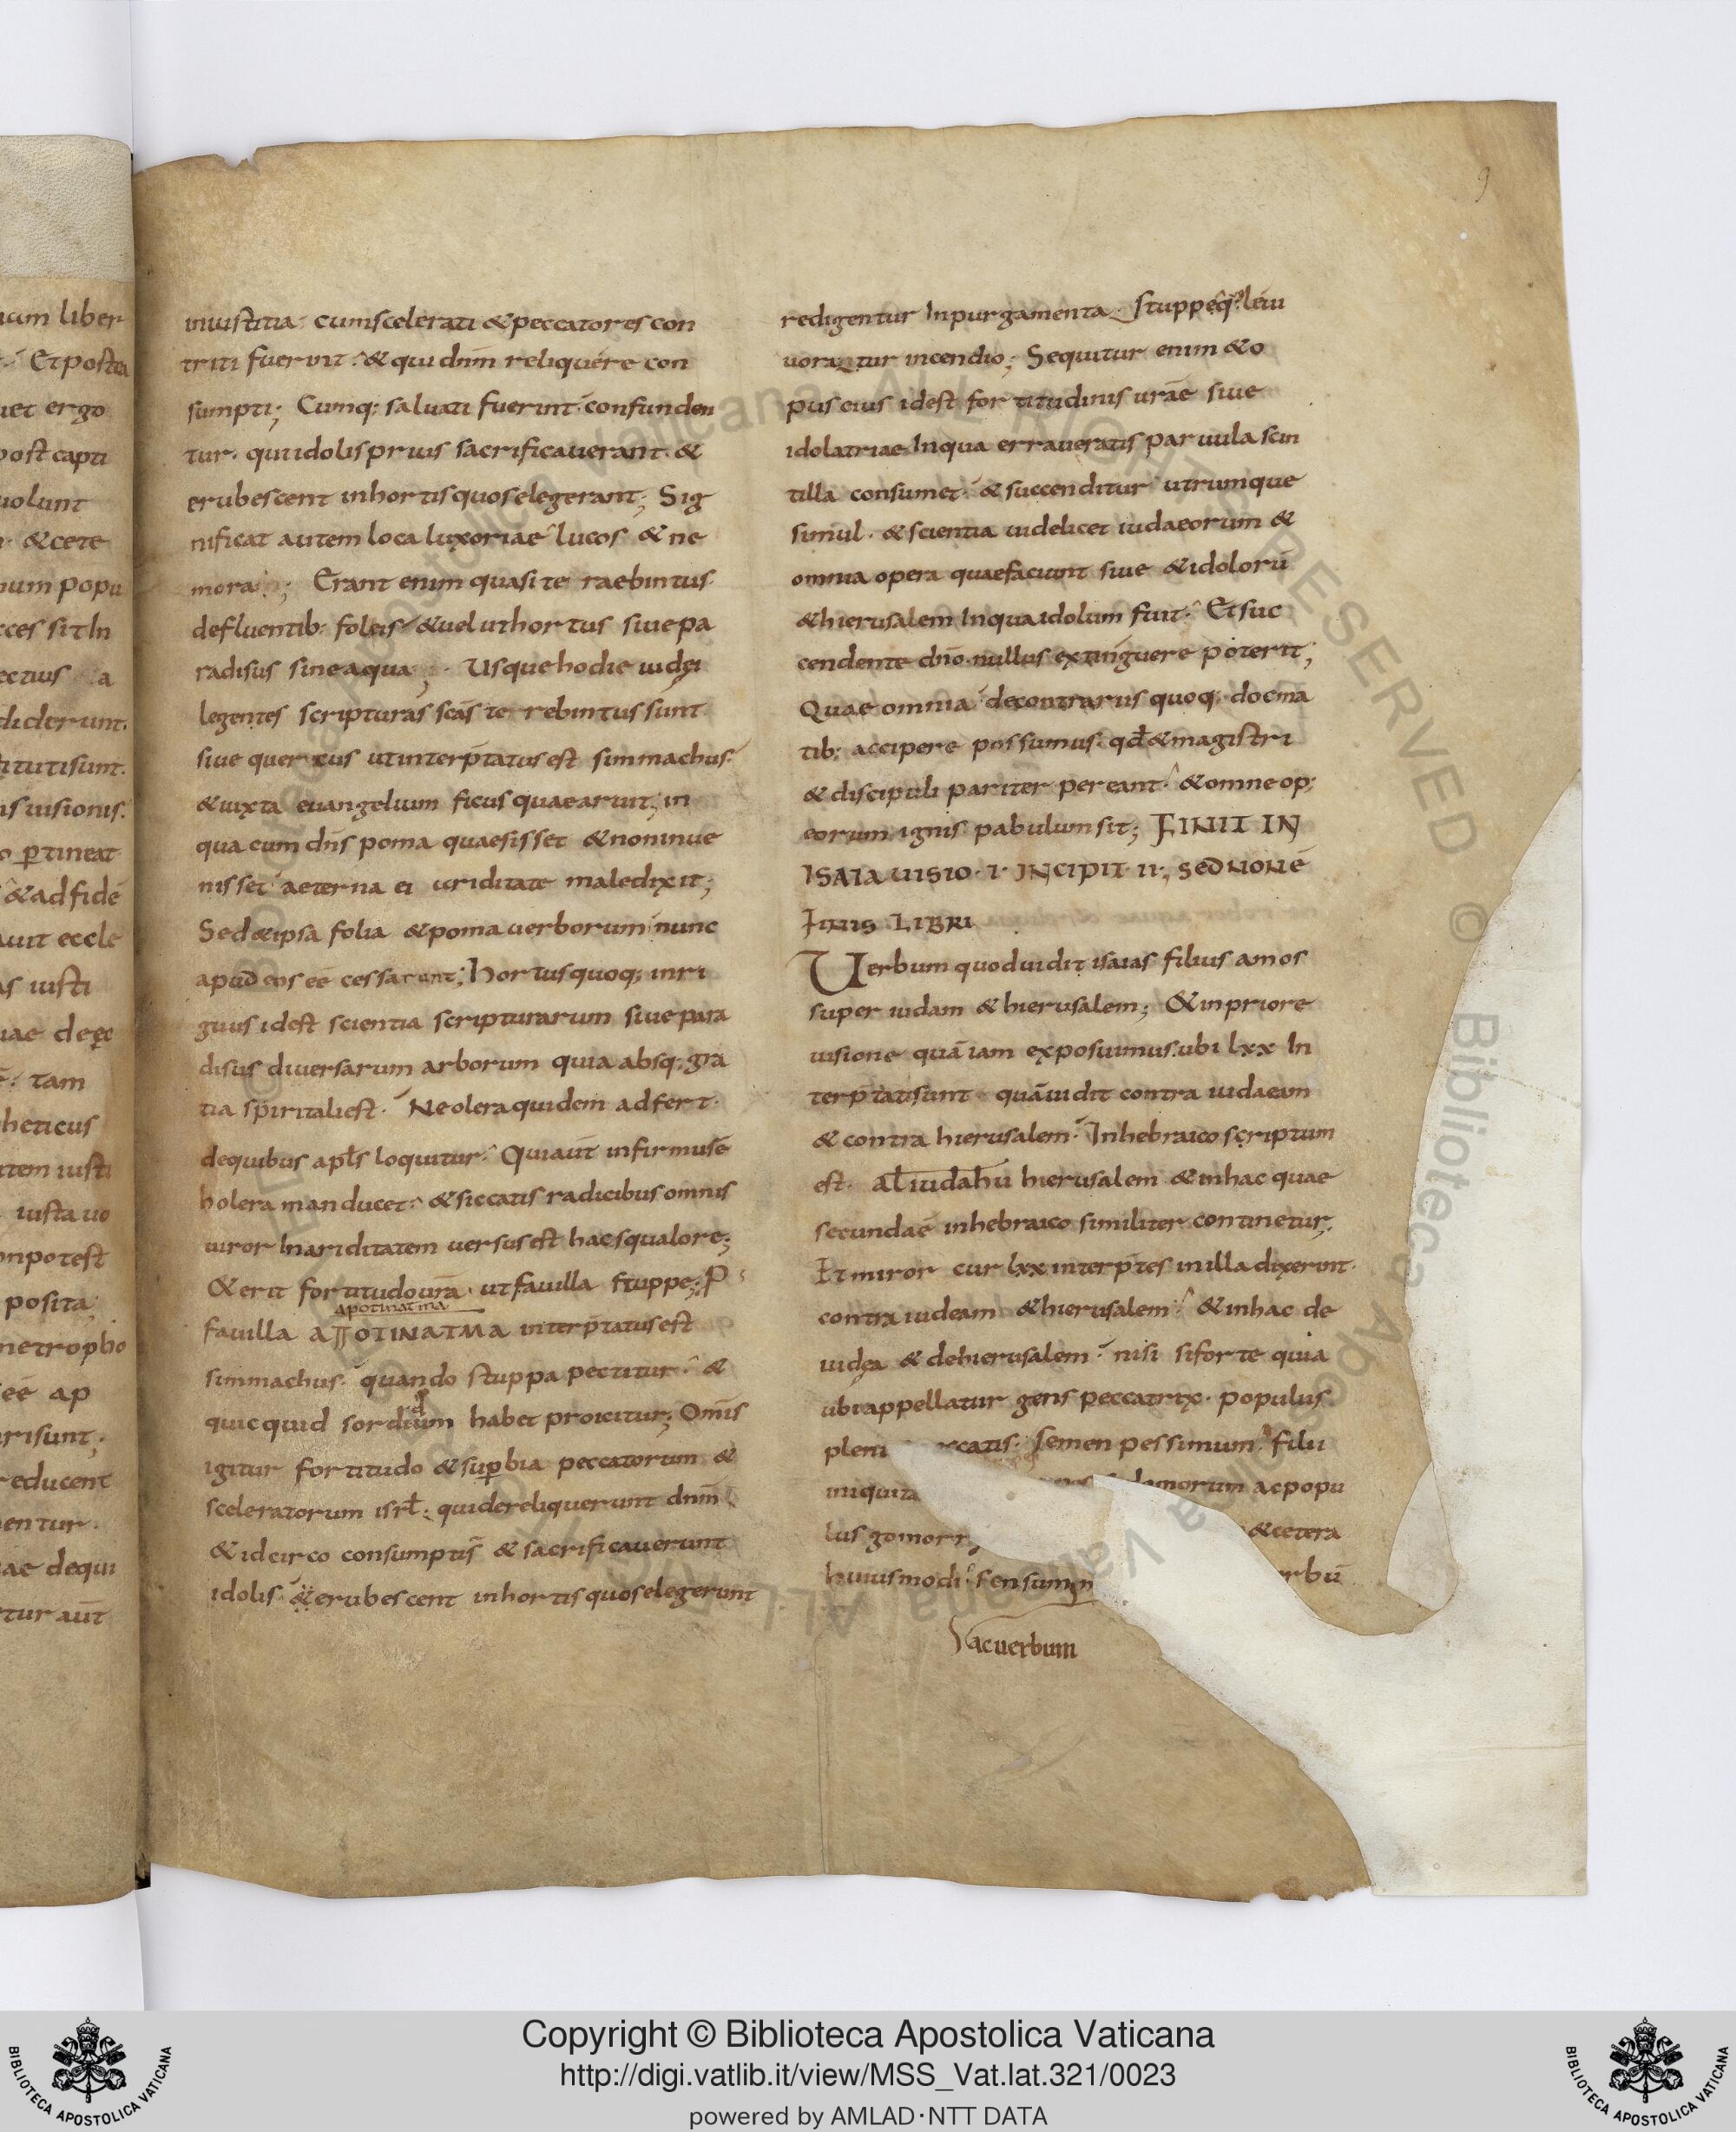 iniustitia. cum scelerati & peccatores con
triti fuerint. & qui dnm̄ reliquere con
sumpti; Cumq: saluati fuerint confunden
tur. qui idolis prius sacrificauerant. &
erubescent in hortis quos elegerant; Sig
nificat autem loca luxoriae lucos & ne
mora; Erant enim quasi te raebintus
defluentib: foliis & uelut hortus siue pa
radisus sine aqua; Usque hodie iudęi
legentes scripturas scās terebintus sunt
siue quercus ut interp̄tatus est simmachus.
& iuxta euangelium ficus quae aruit, in
qua cum dn̄s poma quaesisset & non inue
nisset aeterna ei uriditate maledixit;
Sed & ipsa folia & poma uerborum nunc
apud eos eē cessarunt; hortus quoq; inri
guus idest scientia scripturarum siue para
disus diuersarum arborum quia absq; gra
tia spiritali est. Ne olera quidem adfert.
de quibus apl̄s loquitur. Qui aūt infirmus ē
holera manducet. & siccatis radicibus omnis
uiror In ariditatem uersus est hac squalore;
& erit fortitudo ur̄a. ut fauilla stuppe; P
apotinatma
fauilla aΠOTINATMA interp̄tatus est
simmachus. quando stuppa pectitur. &
quicquid sordium habet proicitur; Om̄is
igitur fortitudo & sup̄bia peccatorum &
sceleratorum isrł. qui dereliquerunt dnm̄
& idcirco consumptis & sacrificauerunt
idolis. & erubescent in hortis quos elegerunt
redigentur In purgamenta. Stuppeq̄: leui
uorantur incendio; Sequitur enim & o
pus eius idest fortitudinis urāe siue
idolatriae In qua erraueratis paruula scin
tilla consumet. & succenditur utrumque
simul. & scientia uidelicet iudaeorum &
omnia opera quae faciunt siue & idolorū
& hierusalem In qua idolum fuit. Et suc
cendente dnō. nullus extinguere poterit;
Quae omnia de contrariis quoq; docma
tib: accipere possumus. qđ & magistri
& discipuli pariter pereant. & omne op;
eorum ignis pabulum sit; FINIT IN
ISAIA UISIO. I. INCIPIT. II; SED NON Ē
FINIS LIBRI
Uerbum quod uidit isaias filius amos
super iudam & hierusalem; & in priore
uisione quā iam exposuimus. ubi lxx In
terp̄tati sunt quā uidit contra iudaeam
& contra hierusalem. In hebraico scriptum
est. al iudahu hierusalem & in hac quae
secunda ē in hebraico similiter continetur;
Et miror cur lxx interp̄tes in illa dixerint.
contra iudeam & hierusalem. & in hac de
iudęa & de hierusalem. nisi siforte quia
ubi appellatur gens peccatrix. populus
pleni catis. semen pessimum. filii
iniquita morum ac popu
lus gomorr & cetera
huiusmodi. sensum rbū
hac uerbum
9
icum liber
Et postea
uet ergo
post capti
uolunt
& cete
num popu
ces sit In
ectius a
diderunt.
titutisunt.
is uisionis.
o p̄tineat
& ad fidē
auit eccle
as iusti
uae de ec
ē. tam
heticus
item iusti
iusta uo
onpotest
posita;
netropho
eē ap
arisunt;
reducent
entur.
ae dequi
tur aūt
© Biblioteca Apostolica Vaticana ALL RIGHTS RESERVED
Copyright © Biblioteca Apostolica Vaticana
http://digi.vatlib.it/view/MSS_Vat.lat.321/0023
powered by AMLAD·NTT DATA
BIBLIOTECA APOSTOLICA VATICANA
BIBLIOTECA APOSTOLICA VATICANA